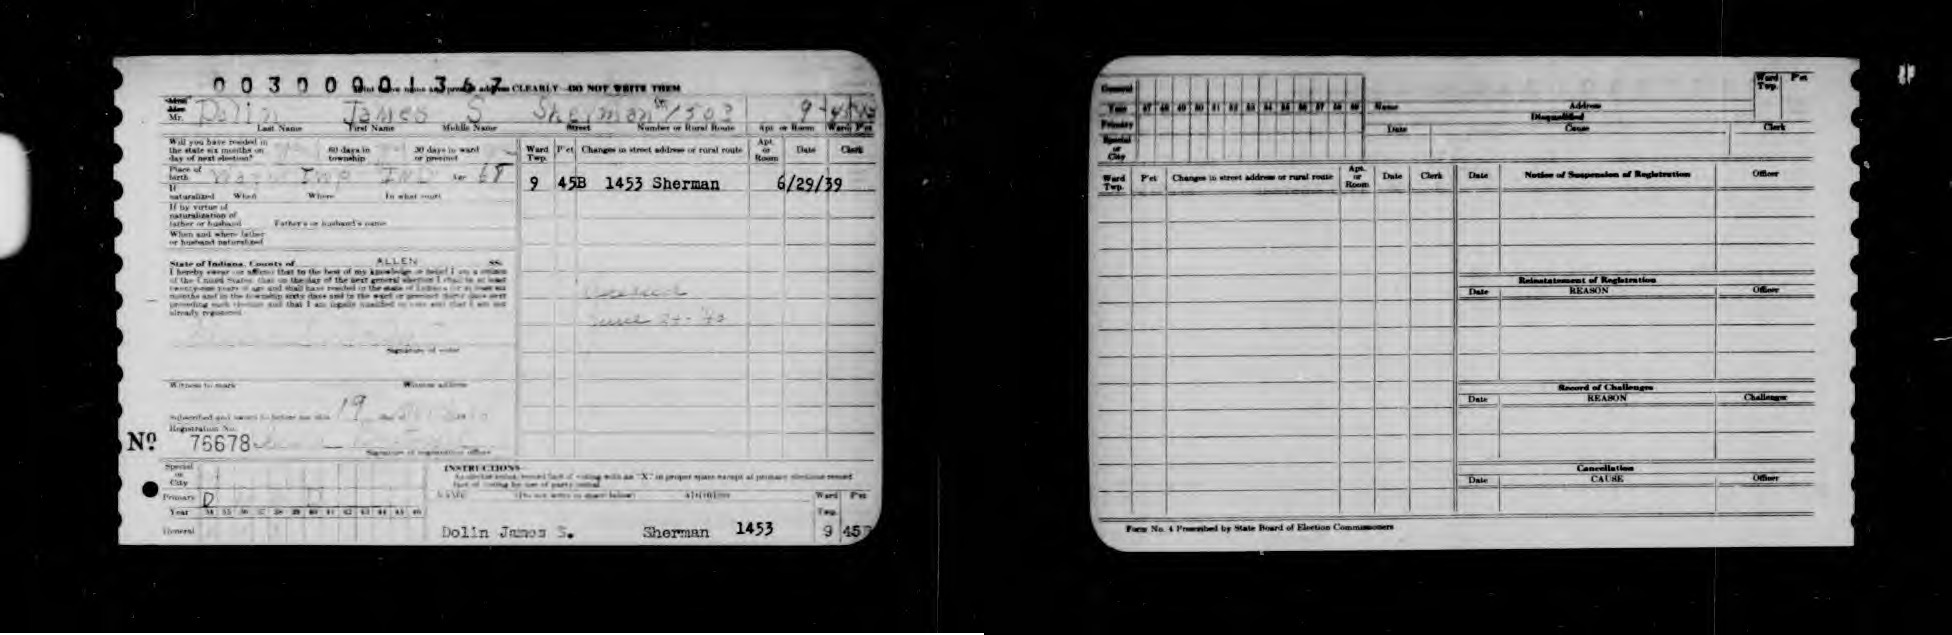 0030001367
Print above name and present address CLEARLY—DO NOT WRITE THEM
Miss
Mrs.
Mr. Dolin James S Sherman 1503 9
Last Name First Name Middle Name Street Number or Rural Route Apt. or Room Ward P'ct
Will you have resided in
the state six months on
day of next election?
60 days in
township
30 days in ward
or precinct
Place of
birth Wayne Twp IND Age 68
If
naturalized When Where In what court
If by virtue of
naturalization of
father or husband Father's or husband's name
When and where father
or husband naturalized
State of Indiana, County of ALLEN ss.
I hereby swear (or affirm) that to the best of my knowledge or belief I am a citizen
of the United States, that on the day of the next general election I shall be at least
twenty-one years of age and shall have resided in the state of Indiana for at least six
months and in the township sixty days and in the ward or precinct thirty days next
preceding such election and that I am legally qualified to vote and that I am not
already registered
Signature of voter
Witness to mark Witness address
Subscribed and sworn to before me this 19 day of
Registration No.
Nº 75678
Signature of registration officer
Ward
Twp. P'ct Changes in street address or rural route Apt.
or
Room Date Clerk
9 45B 1453 Sherman 6/29/39
Deceased
June 24-'40
Special
or
City
Primary D
Year 34 35 36 37 38 39 40 41 42 43 44 45 46
General
INSTRUCTIONS
NAME (Do not write in space below) ADDRESS Ward
Twp. P'ct
Dolin James S. Sherman 1453 9 45
General
Year 47 48 49 50 51 52 53 54 55 56 57 58 59
Primary
Special
or
City
Name Address Ward
Twp. P'ct
Disqualified
Date Cause Clerk
Ward
Twp. P'ct Changes in street address or rural route Apt.
or
Room Date Clerk
Date Notice of Suspension of Registration Officer
Reinstatement of Registration
Date REASON Officer
Record of Challenges
Date REASON Challenger
Cancellation
Date CAUSE Officer
Form No. 4 Prescribed by State Board of Election Commissioners